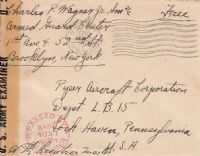 Charles R. Wagner Jr. Sm2c
Free
Armed Guard Center
1st Ave & 52nd St.
Brooklyn, New York
U.S. ARMY EXAMINER
Piper Aircraft Corporation
Dept. L.B. 15
Lock Haven, Pennsylvania
U.S.A.
PASSED BY